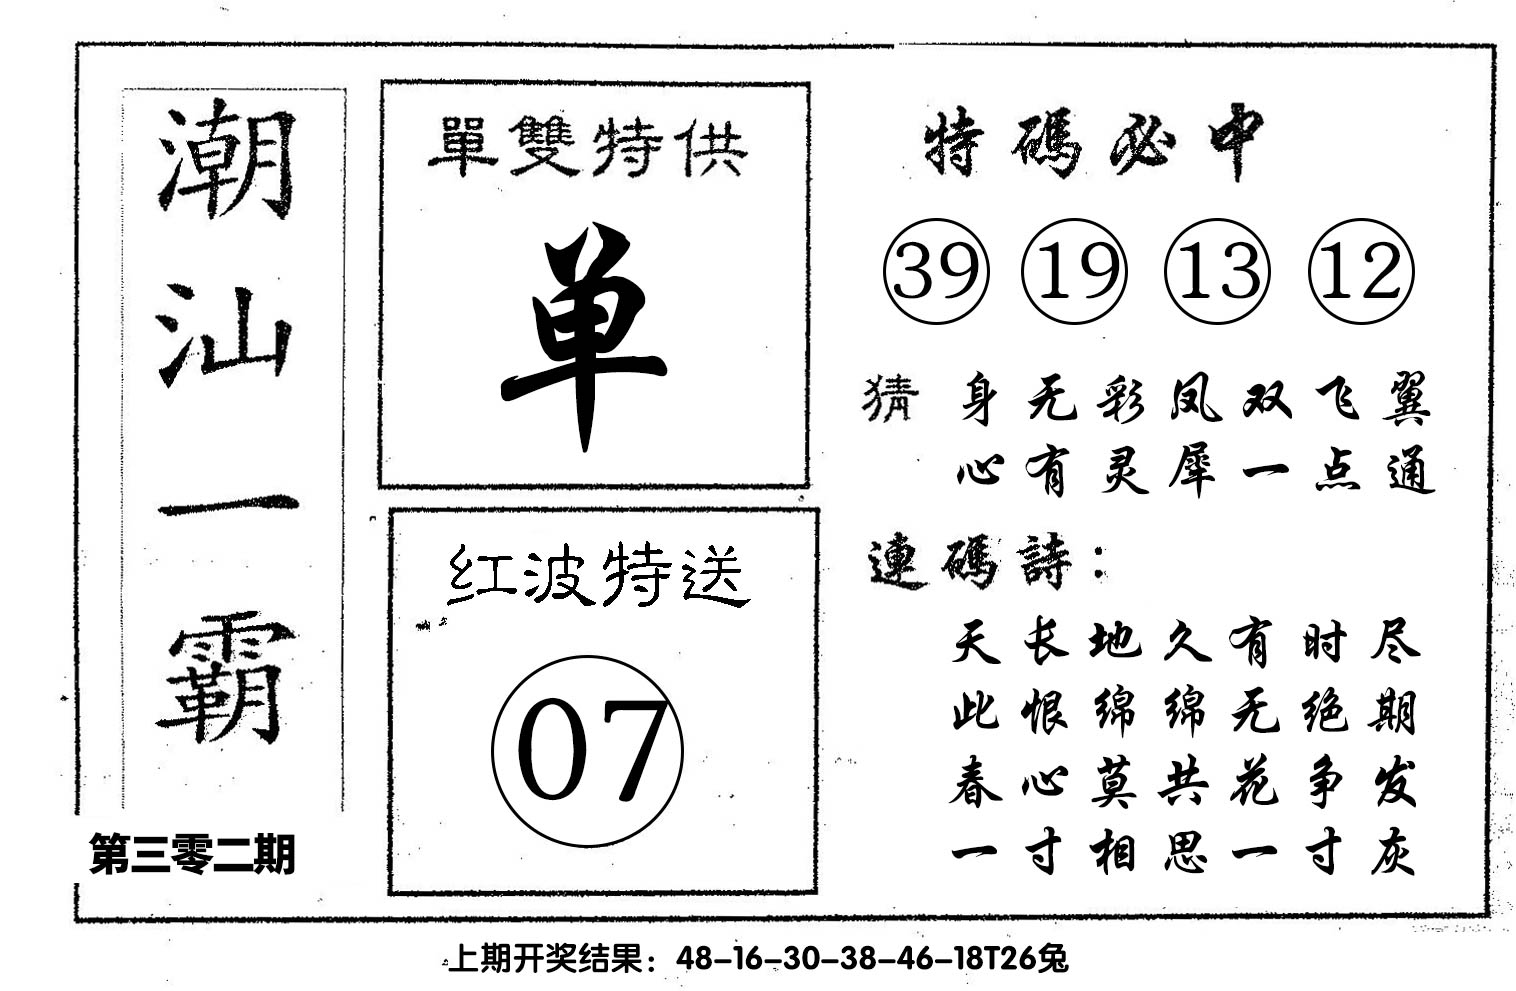 潮汕一霸
第三零二期
單雙特供
单
红波特送
07
特碼必中
39 19 13 12
猜 身无彩凤双飞翼
心有灵犀一点通
連碼詩：
天长地久有时尽
此恨绵绵无绝期
春心莫共花争发
一寸相思一寸灰
上期开奖结果：48-16-30-38-46-18T26兔